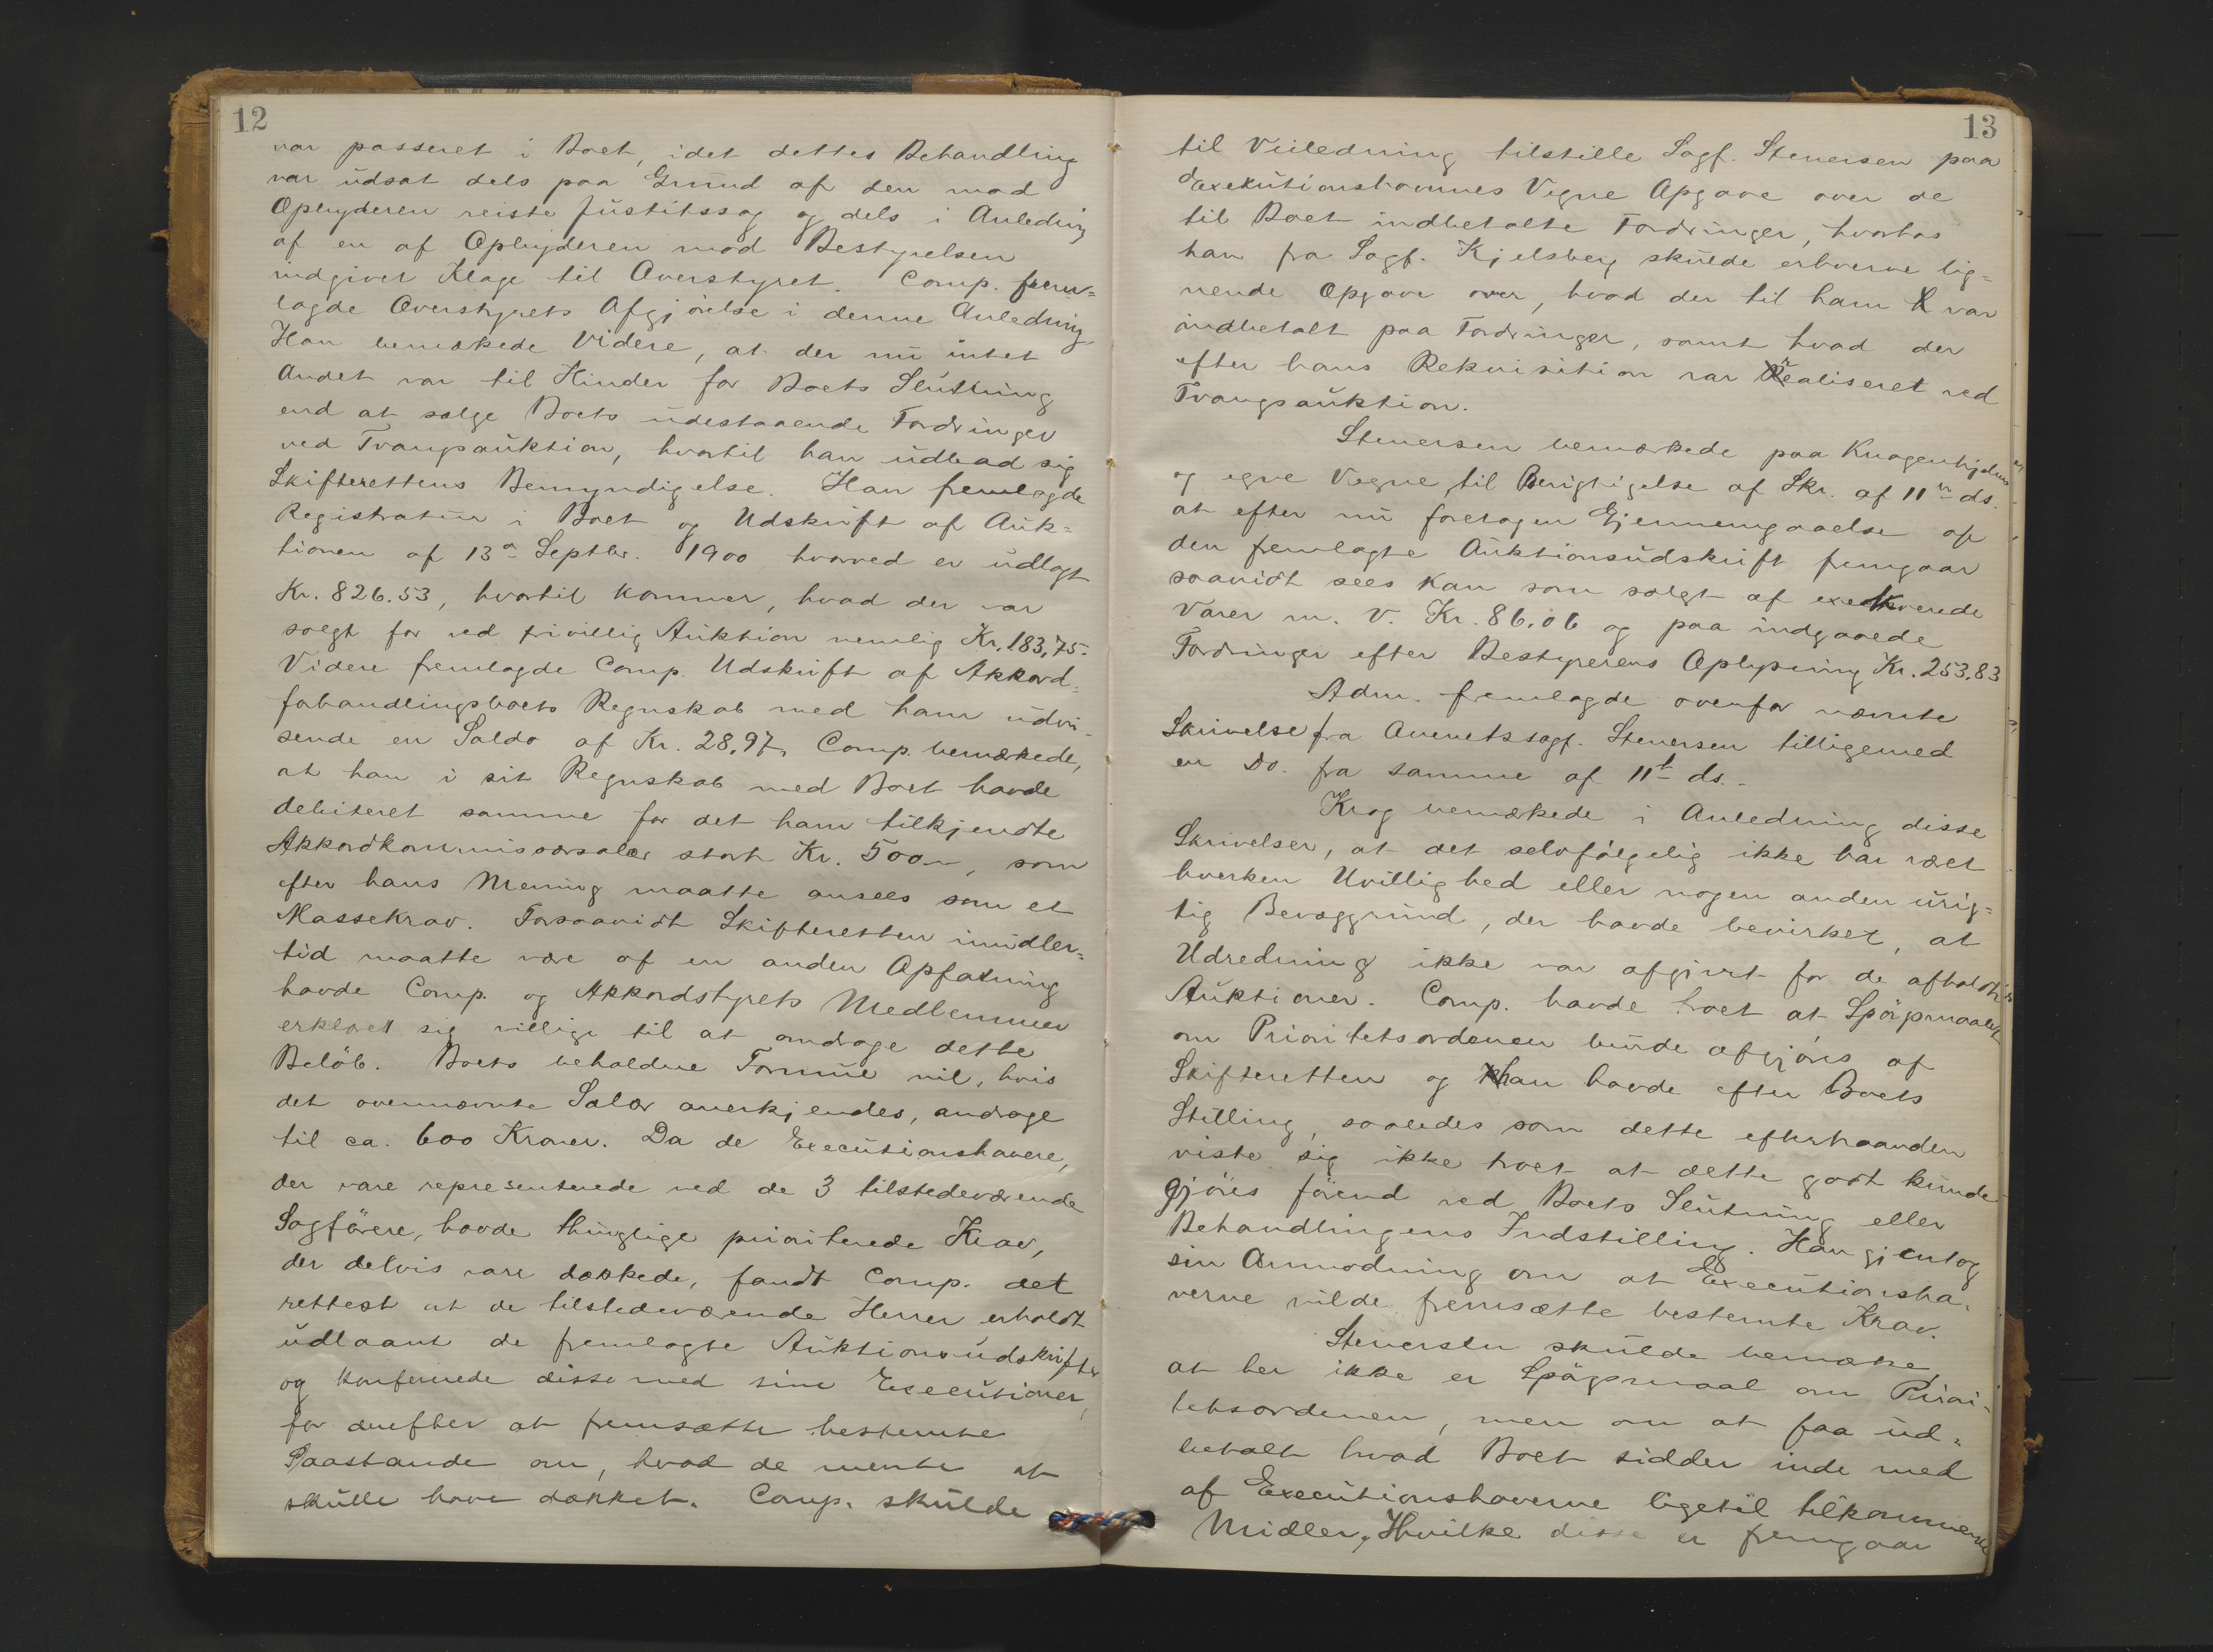 12
var passeret i Boet, idet dettes Behandling
var udsat dels paa Grund af den mod
Opbyderen reiste Justitssag og dels i Anledning
af en af Opbyderen mod Bestyrelsen
indgivet Klage til Overstyret. Comp. frem=
lagde Overstyrets Afgjörelse i denne Anledning.
Han bemærkede videre, at der nu intet
Andet var til Hinder for Boets Slutning
end at sælge Boets udestaaende Fordringer
ved Tvangsauktion, hvortil han udbad sig
Skifterettens Bemyndigelse. Han fremlagde
Registratur i Boet og Udskrift af Auk=
tionen af 13de Septbr. 1900 hvorved er udlagt
Kr. 826.53, hvortil kommer, hvad der var
solgt for ved frivillig Auktion nemlig Kr. 183,75.
Videre fremlagde Comp. Udskrift af Akkord=
forhandlingsboets Regnskab med ham udvi-
sende en Saldo af Kr. 28,97, Comp. bemærkede,
at han i sit Regnskab med Boet havde
debiteret samme for det ham tilkjendte
Akkordkommissærsalær stort Kr. 500-, som
efter hans Mening maatte ansees som et
Massekrav. Forsaavidt Skifteretten imidler=
tid maatte være af en anden Opfatning
havde Comp. og Akkordstyrets Medlemmer
erklæret sig villige til at andrage dette
Belöb. Boets beholdne Formue vil, hvis
det ovennævnte Salær anerkjendes, andrage
til ca. 600 Kroner. Da de Executionshavere,
der vare representerede ved de 3 tilstedeværende
Sagförere, havde thinglige prioriterede Krav,
der delvis vare dækkede, fandt Comp. det
rettest at de tilstedeværende Herrer erholdt
udlaant de fremlagte Auktionsudskrifter
og konfererede disse med sine Executioner,
for derefter at fremsætte bestemte
Paastande om, hvad de mente at
skulle have dækket. Comp. skulde
13
til Veiledning tilstille Sagf. Stenersen paa
Exekutionshavernes Vegne Opgave over de
til Boet indbetalte Fordringer, hvorhos
han fra Sagf. Kjelsberg skulde erhverve lig=
nende Opgave over, hvad der til ham var
indbetalt paa Fordringer, samt hvad der
efter hans Rekvisition var realiseret ved
Tvangsauktion.
Stenersen bemærkede paa Knagenhjelms
og egne Vegne til Berigtigelse af Skr. af 11te ds.
at efter nu foretagen Gjennemgaaelse af
den fremlagte Auktionsudskrift fremgaar
saavidt sees kan som solgt af exekverede
Varer m. v. Kr. 86.06 og paa indgaaede
Fordringer efter Bestyrerens Oplysning Kr. 253.83
Adm. fremlagde ovenfor nævnte
Skrivelse fra Overretssagf. Stenersen tilligemed
en Do. fra samme af 11t ds.-
Krog bemærkede i Anledning disse
Skrivelser, at det selvfölgelig ikke har væet
hverken Uvillighed eller nogen anden urig=
tig Bevæggrund, der havde bevirket, at
Udredning ikke var afgivet for de afholdte
Auktioner. Comp. havde troet at Spörgsmaalet
om Prioritetsordenen burde afgjöres af
Skifteretten og han havde efter Boets
Stilling, saaledes som dette efterhaanden
viste sig ikke troet at dette godt kunde
gjöres förend ved Boets Slutning eller
Behandlingens Indstilling. Han gjentog
sin Anmodning om at Executionsha-
verne vilde fremsætte bestemte Krav.
Stenersen skulde bemærke,
at her ikke er Spörgsmaal om Priori-
tetsordenen, men om at faa ud=
betalt hvad Boet sidder inde med
af Executionshaverne ligetil tilkommende
Midler, Hvilke disse er fremgaar